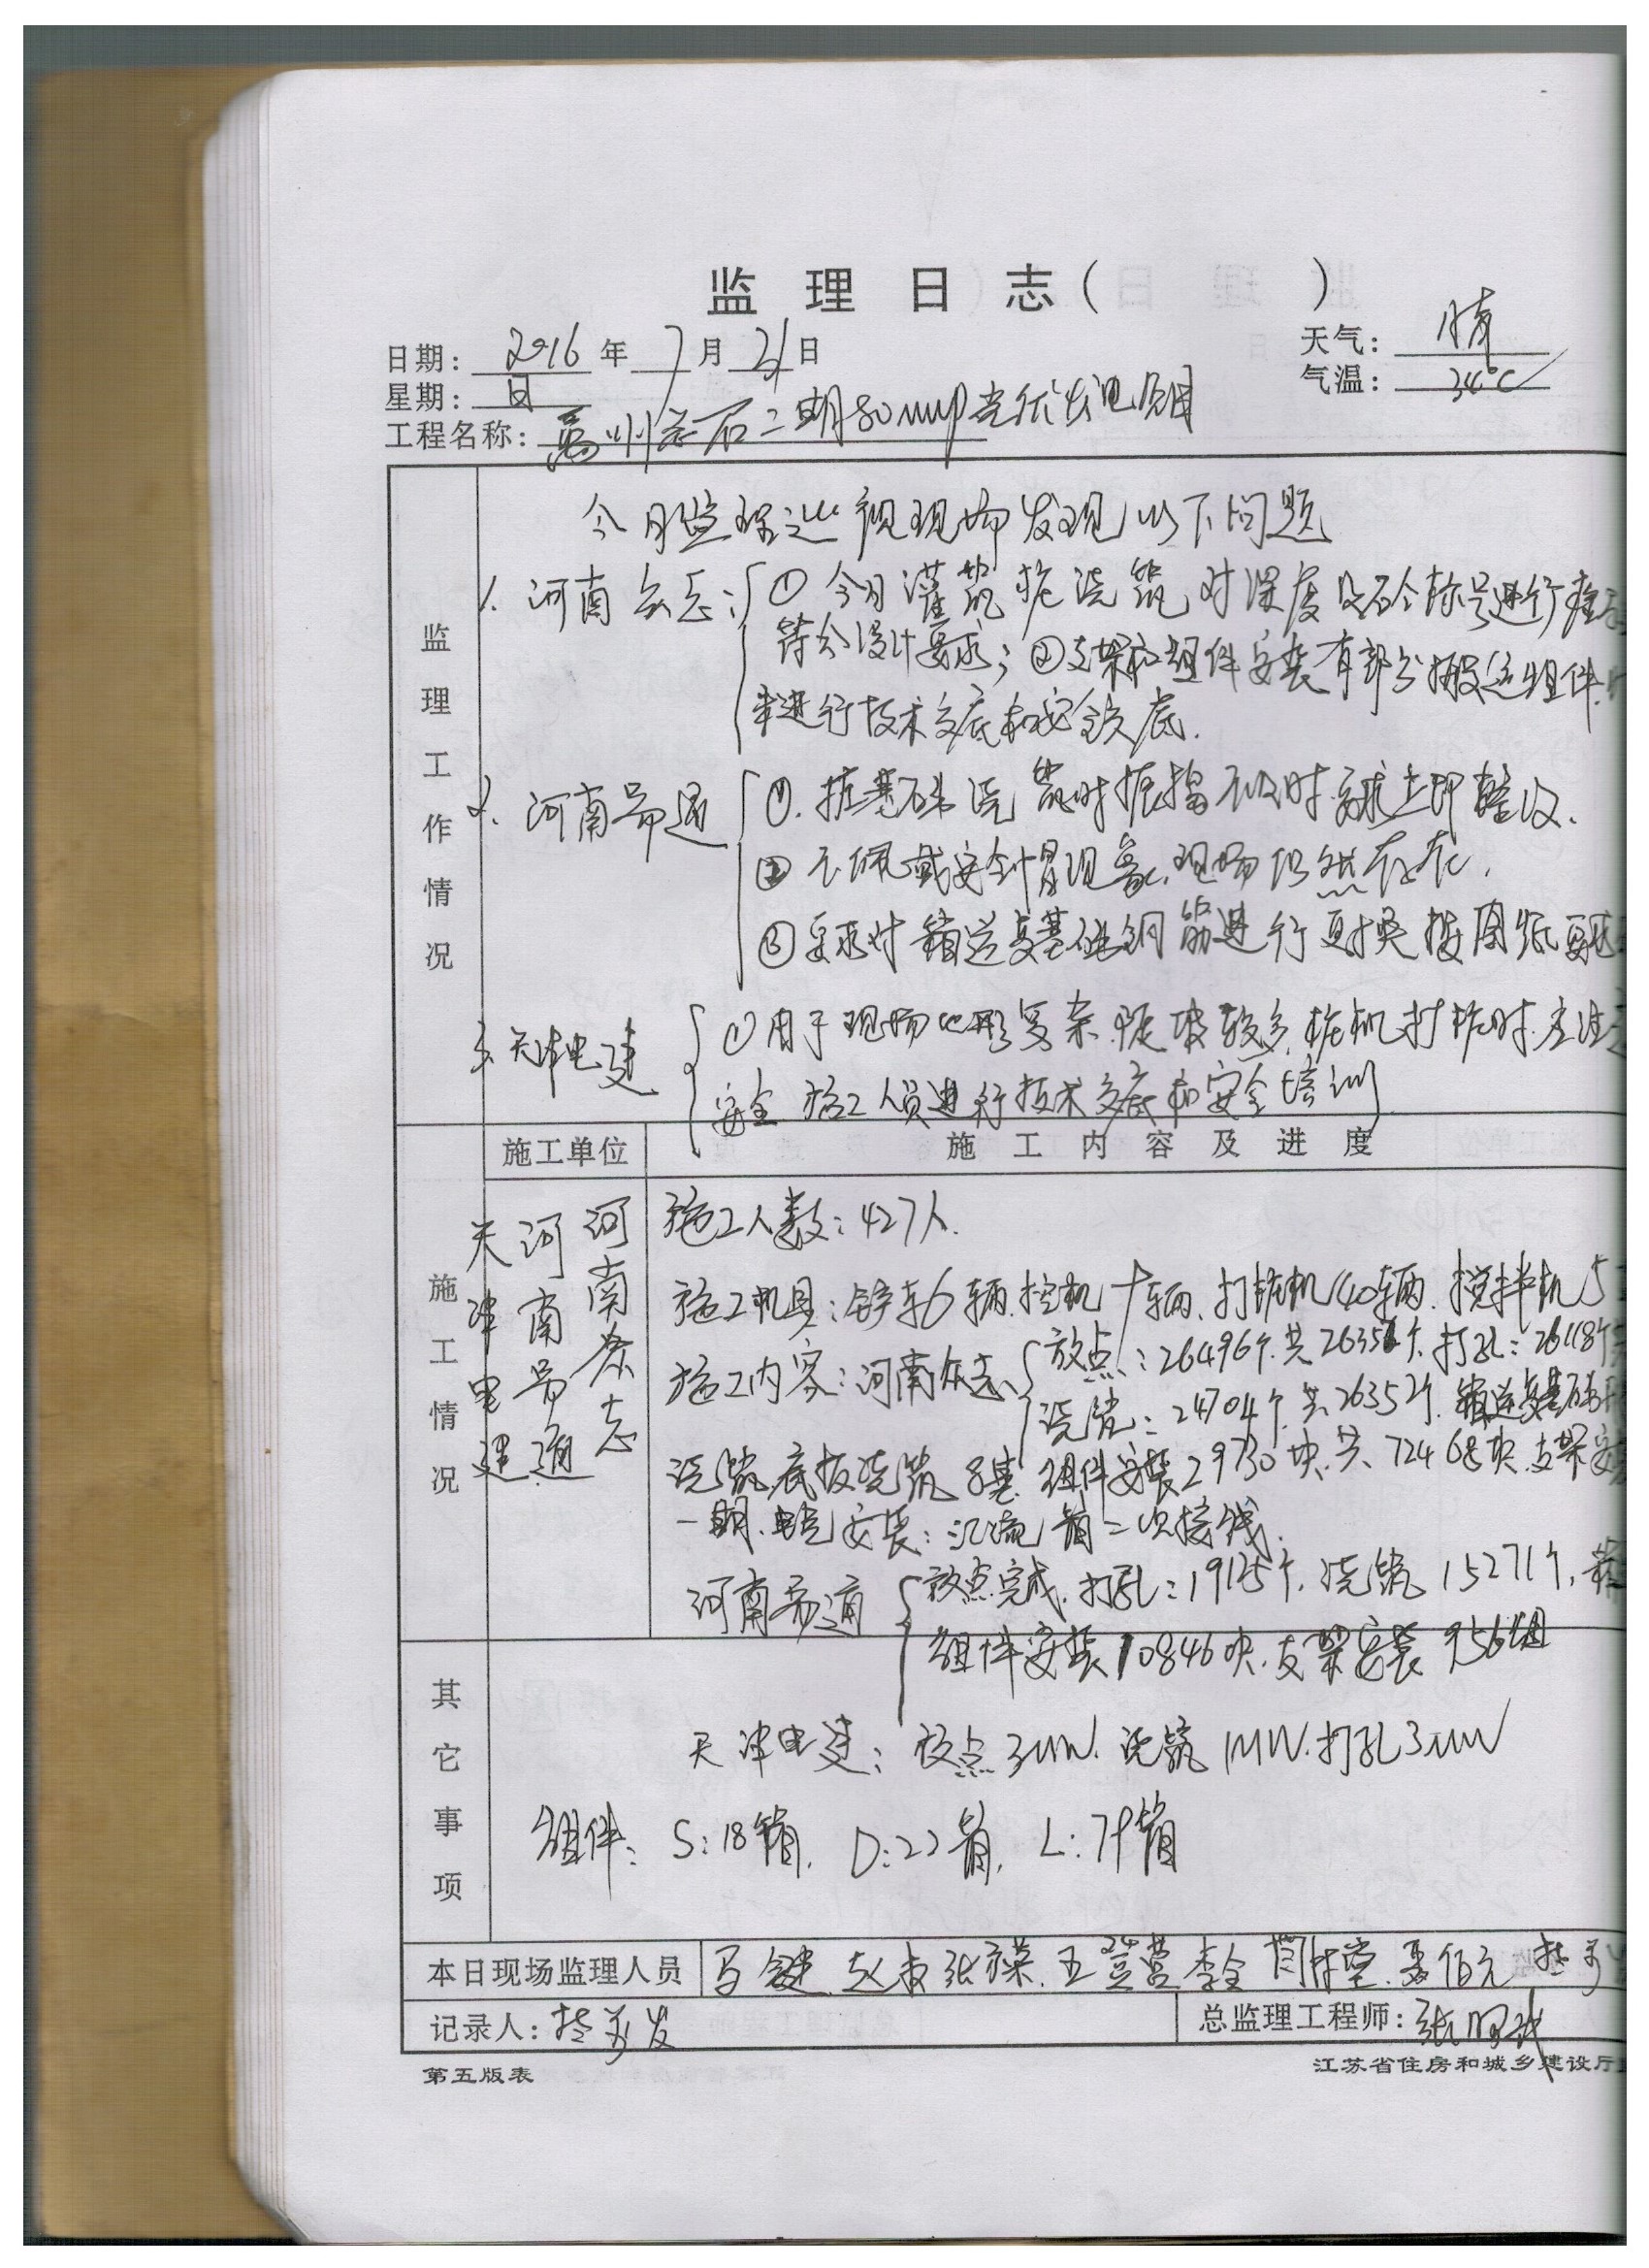 监 理 日 志（ ）
日期： 2016 年 7 月 日
天气： 晴
星期： 日
气温： 34℃
工程名称： 禹州 二期80MWp光伏发电项目
监理工作情况
今日监理巡视现场发现以下问题
1. 河南众志：①今日灌筑桩浇筑对深度及砼标号进行
符合设计要求；②支架和组件安装有部分搬运组件
未进行技术交底和安全交底.
2. 河南 通 ①. 桩基础浇筑时振捣不及时.要求立即整改.
② 不佩戴安全帽现象,现场仍然存在.
③要求对箱逆变基础钢筋进行更换按图纸要求
3.天津电建 ①由于现场地形复杂.陡坡较多,桩机打桩时.应注意
安全 施工人员进行技术交底和安全培训
施工单位 施 工 内 容 及 进 度
施工情况
河南众志
河南 通
天津电建
施工人数：427人.
施工机具：铲车6辆.挖机十辆.打桩机40辆.搅拌机5
施工内容：河南众志 放点：26496个.共26352个.打孔：26118个
浇筑：24704个.共26352个.箱逆变基础
浇筑.底板浇筑8基.组件安装29730块.共72468块.支架安
一期.电气安装：汇流箱二次接线.
河南 通 放点完成.打孔：19125个,浇筑15271个,
组件安装10846块.支架安装956组
其它事项
天津电建：放点3MW.浇筑1MW.打孔3MW
组件：S:18箱. D:22箱. L:79箱
本日现场监理人员 马健 李全
记录人：
总监理工程师：
第五版表 江苏省住房和城乡建设厅